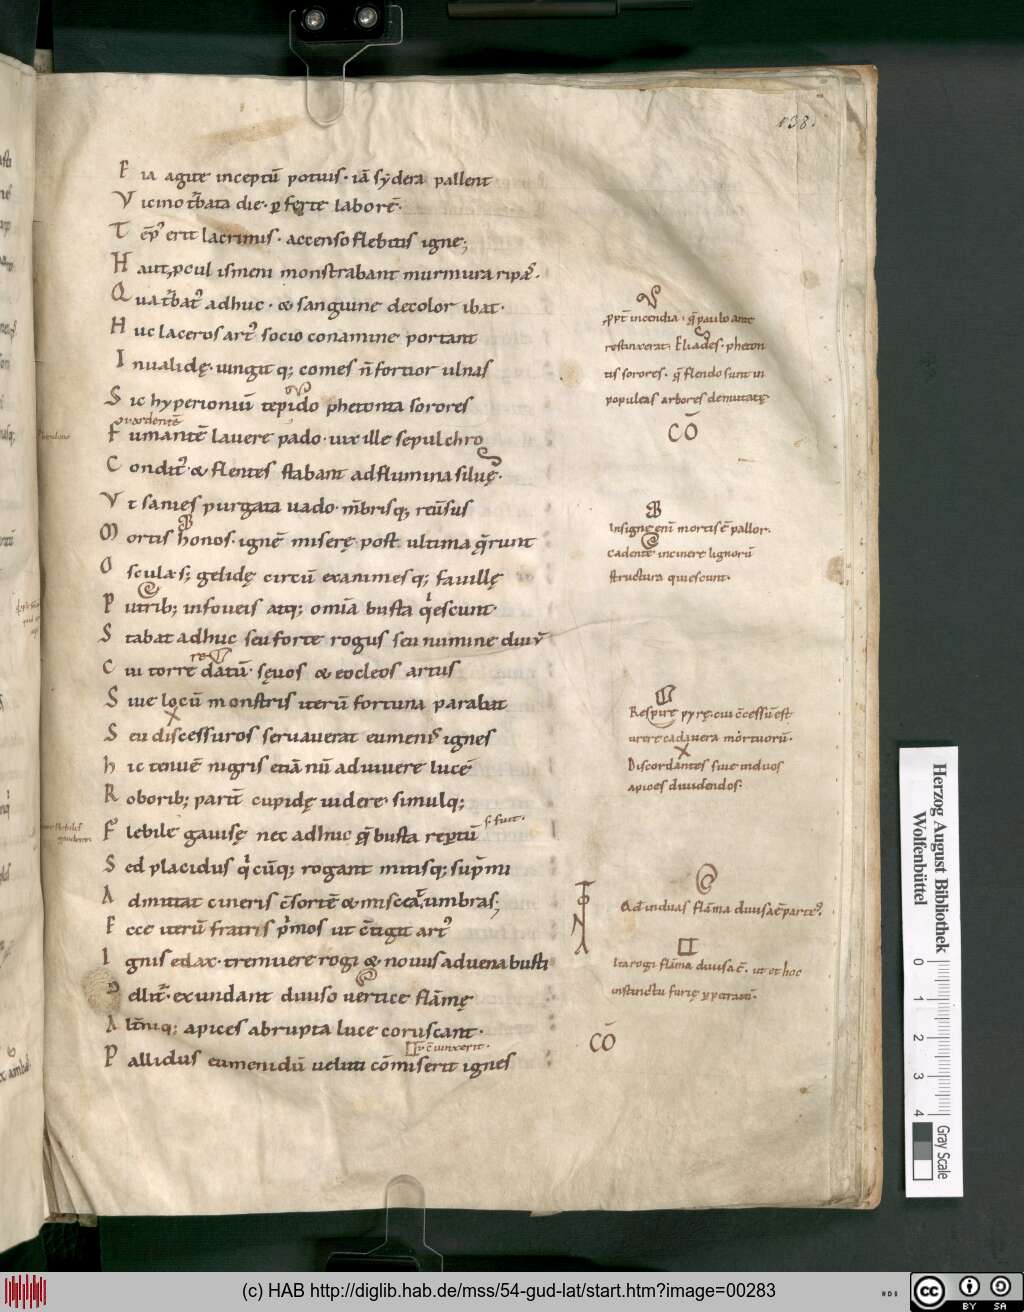 138.
E ia agite inceptū potius. iā sydera pallent
V icino t̄bata die. ꝑferte laborē.
T ēp᾿ erit lacrimis. accenso flebitis igne;
H aut ꝓcul ismeni monstrabant murmura ripas᾿.
Q ua t̄bat᾿ adhuc. & sanguine decolor ibat.
H uc laceros art᾿ socio conamine portant
I nualidę. iungit q; comes n̄ fortior ulnas
S ic hyperioniū tepido phetonta sorores
F umantē lauere pado. uix ille sepulchro
C ondit᾿. & flentes stabant ad flumina siluę.
V t sanies purgata uado. m̄brisq; reūsus
M ortis honos. ignē miserę post ultima q̄runt
O scula. s; gelidę circū exanimesq; fauillę
P utrib; in foueis atq; omīa busta q᾿escunt.
S tabat adhuc seu forte rogus seu numine diuū
C ui torre datū. sęuos & eocleos artus
S iue locū monstris iterū fortuna parabat
S eu discessuros seruauerat eumenis᾿ ignes
h ic tenuē nigris etiā nū aduiuere lucē
R oborib; parit̄ cupidę uidere. simulq;
F lebile gauisę nec adhuc q̄ busta reptū
S ed placidus q᾿cūq; rogant mitisq; sup̄mi
A dmittat cineris c̄sortē & misceat umbras;
E cce iterū fratris p᾿mos ut c̄tigit art᾿
I gnis edax. tremuere rogi & nouus aduena busti
P ellit᾿. exundant diuiso uertice flāmę
A lt̄niq; apices abrupta luce coruscant.
P allidus eumenidū ueluti cōmiserit ignes
ꝓpt̄ incendia. q̄ paulo ante
restinxerat. Eliades. pheton
tis sorores. q̄ flendo sunt in
populeas arbores demutatę
CŌ
Insigne enī mortis ē pallor.
Cadente in cinere lignorū
structura quiescunt.
Respirę pyrę. cui c̄cessū est
urere cadauera mortuorū.
Discordantes siue in duos
apices diuidendos.
Ad in duas flāma diuisa ē partes᾿.
Ita rogi flāma diuisa ē. ut et hoc
instinctu furię ꝑpetratū.
CŌ
Herzog August Bibliothek
Wolfenbüttel
0 1 2 3 4
Gray Scale
(c) HAB http://diglib.hab.de/mss/54-gud-lat/start.htm?image=00283
cc BY SA